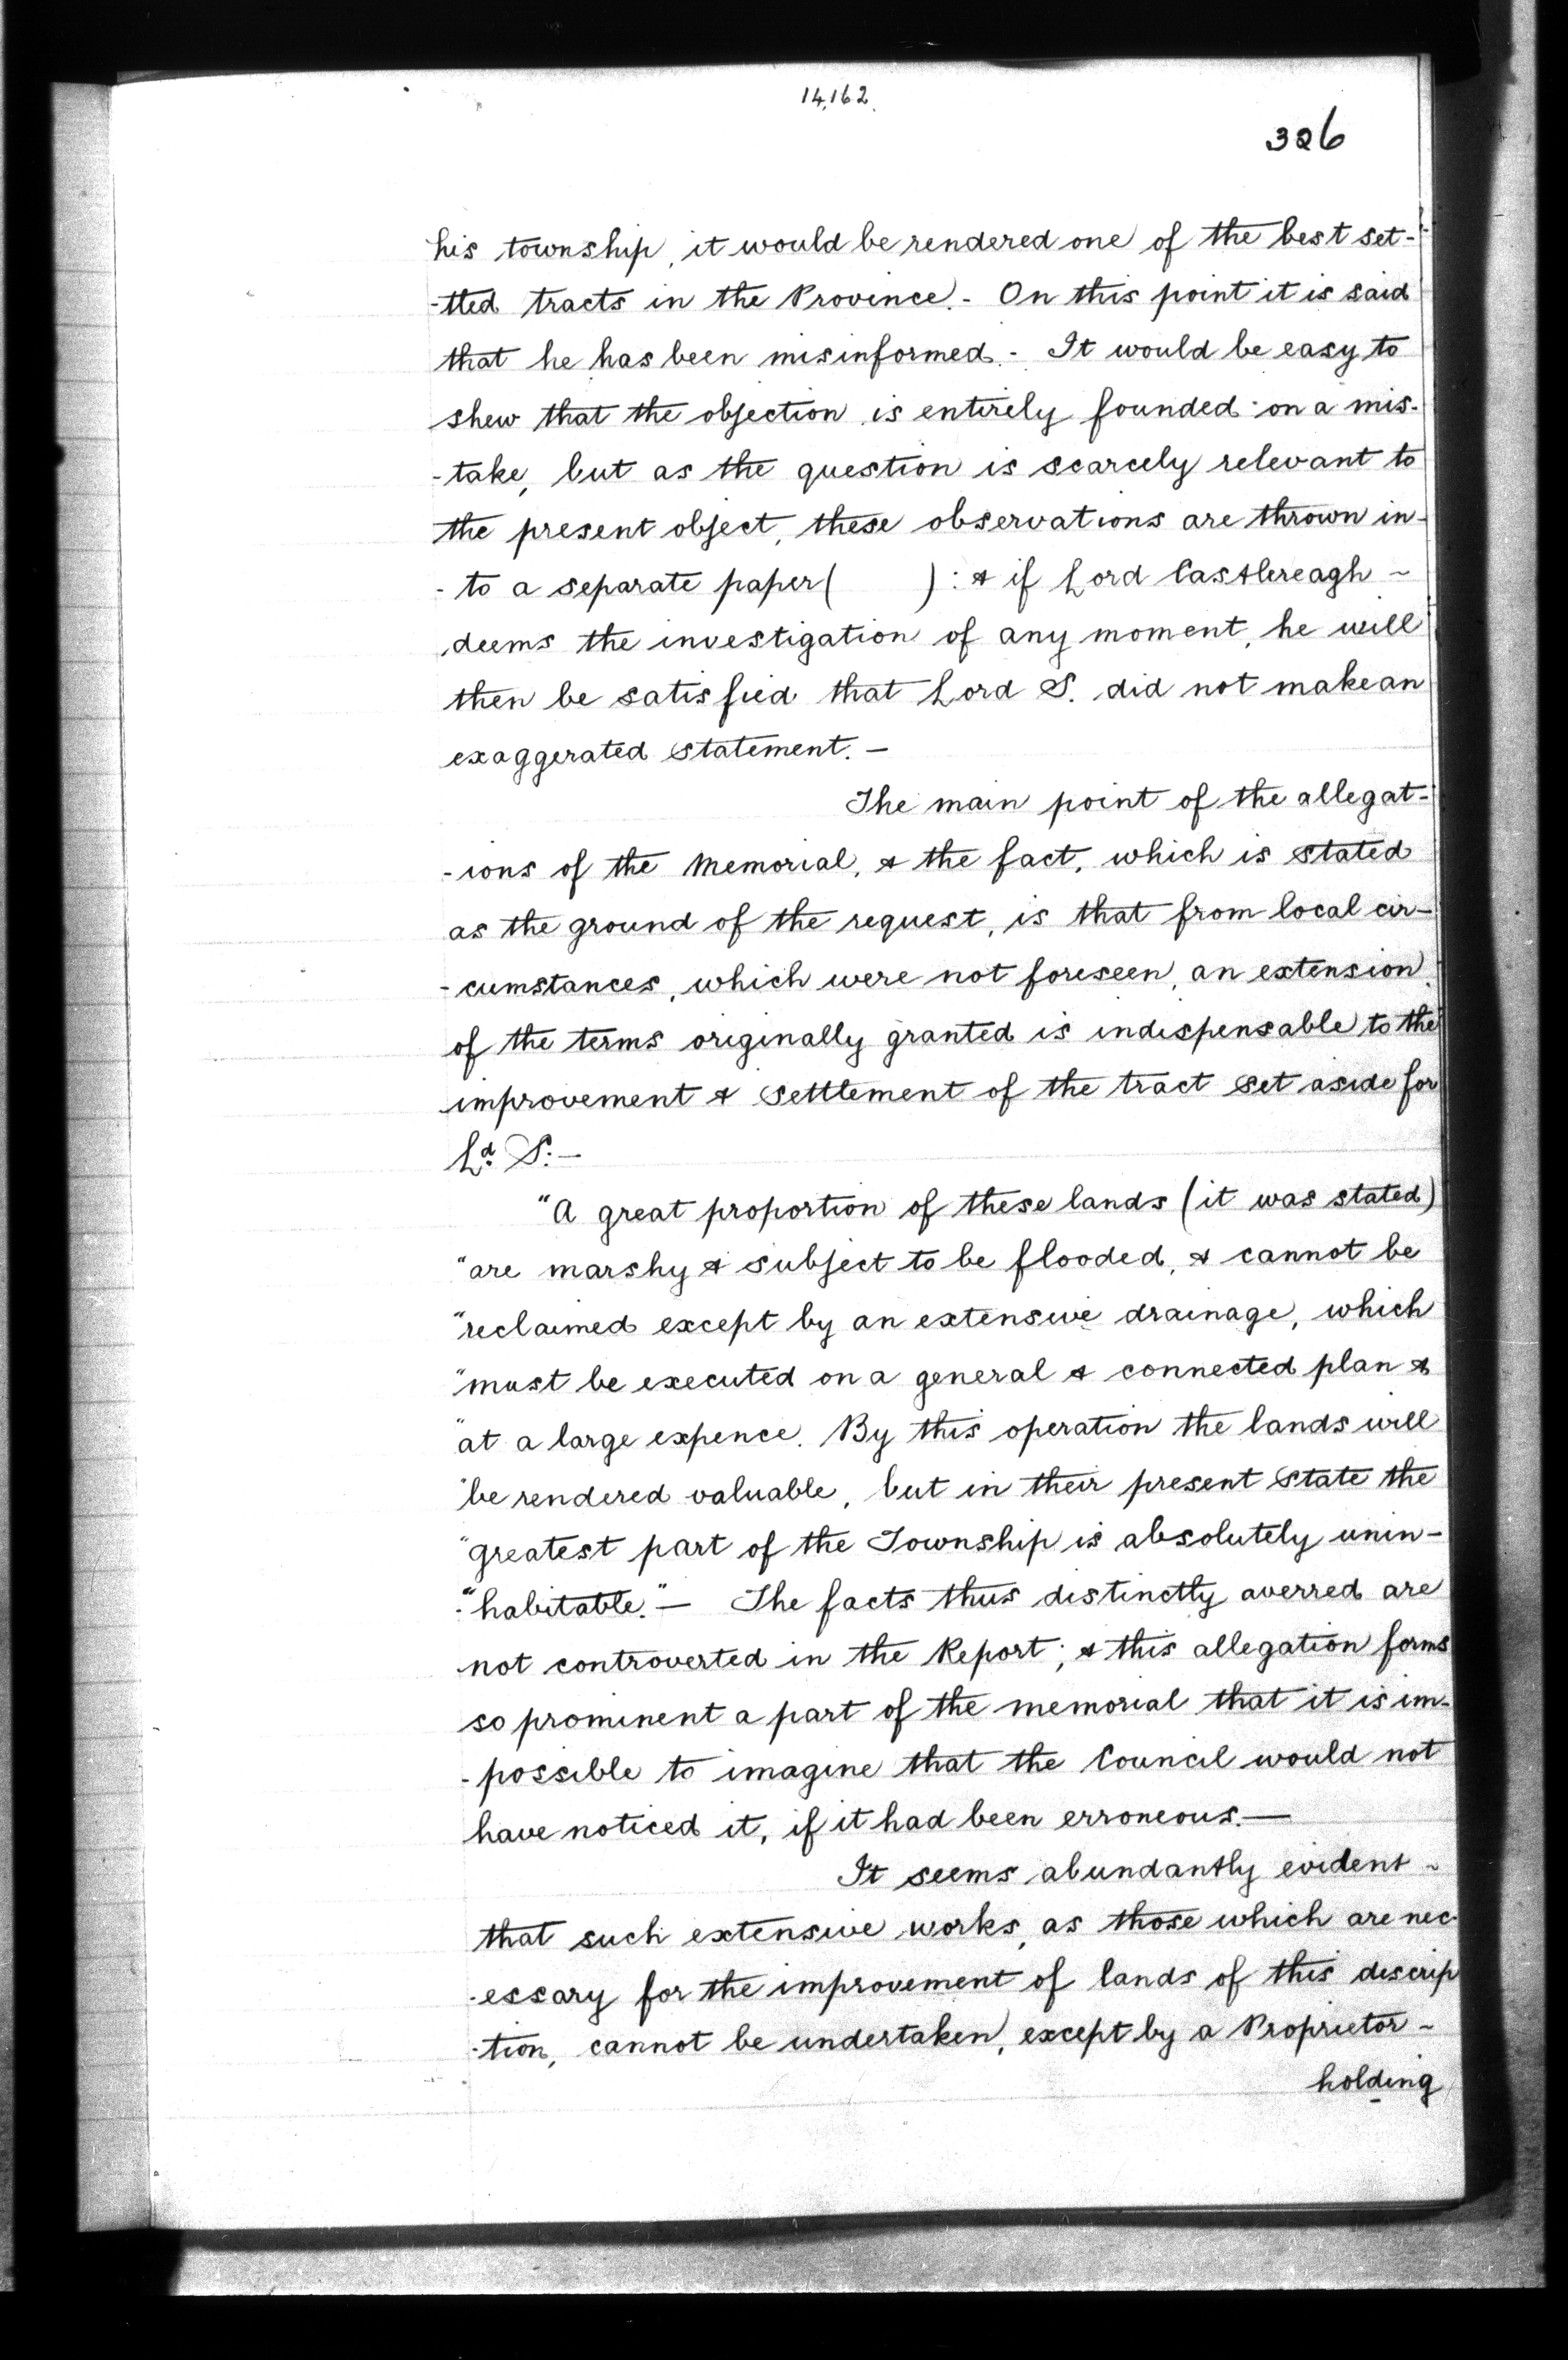 14,162
326
his township, it would be rendered one of the best set-
-tled tracts in the Province. - On this point it is said
that he has been misinformed. - It would be easy to
shew that the objection is entirely founded on a mis-
-take, but as the question is scarcely relevant to
the present object, these observations are thrown in-
- to a separate paper ( ) : & if Lord Castlereagh ~
deems the investigation of any moment, he will
then be satisfied that Lord S. did not make an
exaggerated statement. —
The main point of the allegat-
-ions of the Memorial, & the fact, which is stated
as the ground of the request, is that from local cir-
-cumstances, which were not foreseen, an extension
of the terms originally granted is indispensable to the
improvement & settlement of the tract set aside for
Ld. S: —
"A great proportion of these lands (it was stated)
"are marshy & subject to be flooded, & cannot be
"reclaimed except by an extensive drainage, which
"must be executed on a general & connected plan &
"at a large expence. By this operation the lands will
"be rendered valuable, but in their present state the
"greatest part of the Township is absolutely unin-
-"habitable." — The facts thus distinctly averred are
not controverted in the Report; & this allegation forms
so prominent a part of the memorial that it is im-
-possible to imagine that the Council would not
have noticed it, if it had been erroneous. —
It seems abundantly evident ~
that such extensive works, as those which are nec-
-essary for the improvement of lands of this descrip
-tion, cannot be undertaken, except by a Proprietor ~
holding